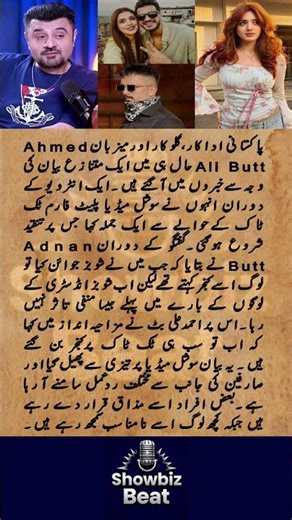 پاکستانی اداکار، گلوکار اور میزبان Ahmed
Ali Butt حال ہی میں ایک متنازع بیان کی
وجہ سے خبروں میں آ گئے ہیں۔ ایک انٹرویو کے
دوران انہوں نے سوشل میڈیا پلیٹ فارم ٹک
ٹاک کے حوالے سے ایک جملہ کہا جس پر تنقید
شروع ہو گئی۔ گفتگو کے دوران Adnan
Butt نے بتایا کہ جب میں نے شوبز جوائن کیا تو
لوگ اسے کنجر کہتے تھے لیکن اب شوبز انڈسٹری کے
لوگوں کے بارے میں پہلے جیسا منفی تاثر نہیں
رہا۔ اس پر احمد علی بٹ نے مزاحیہ انداز میں کہا
کہ اب تو سب ہی ٹک ٹاک پر کنجر بن گئے
ہیں۔ یہ بیان سوشل میڈیا پر تیزی سے پھیل گیا اور
صارفین کی جانب سے مختلف ردعمل سامنے آ رہا
ہے۔ بعض افراد اسے مذاق قرار دے رہے
ہیں جبکہ کچھ لوگ اسے نامناسب سمجھ رہے ہیں۔
Showbiz
Beat